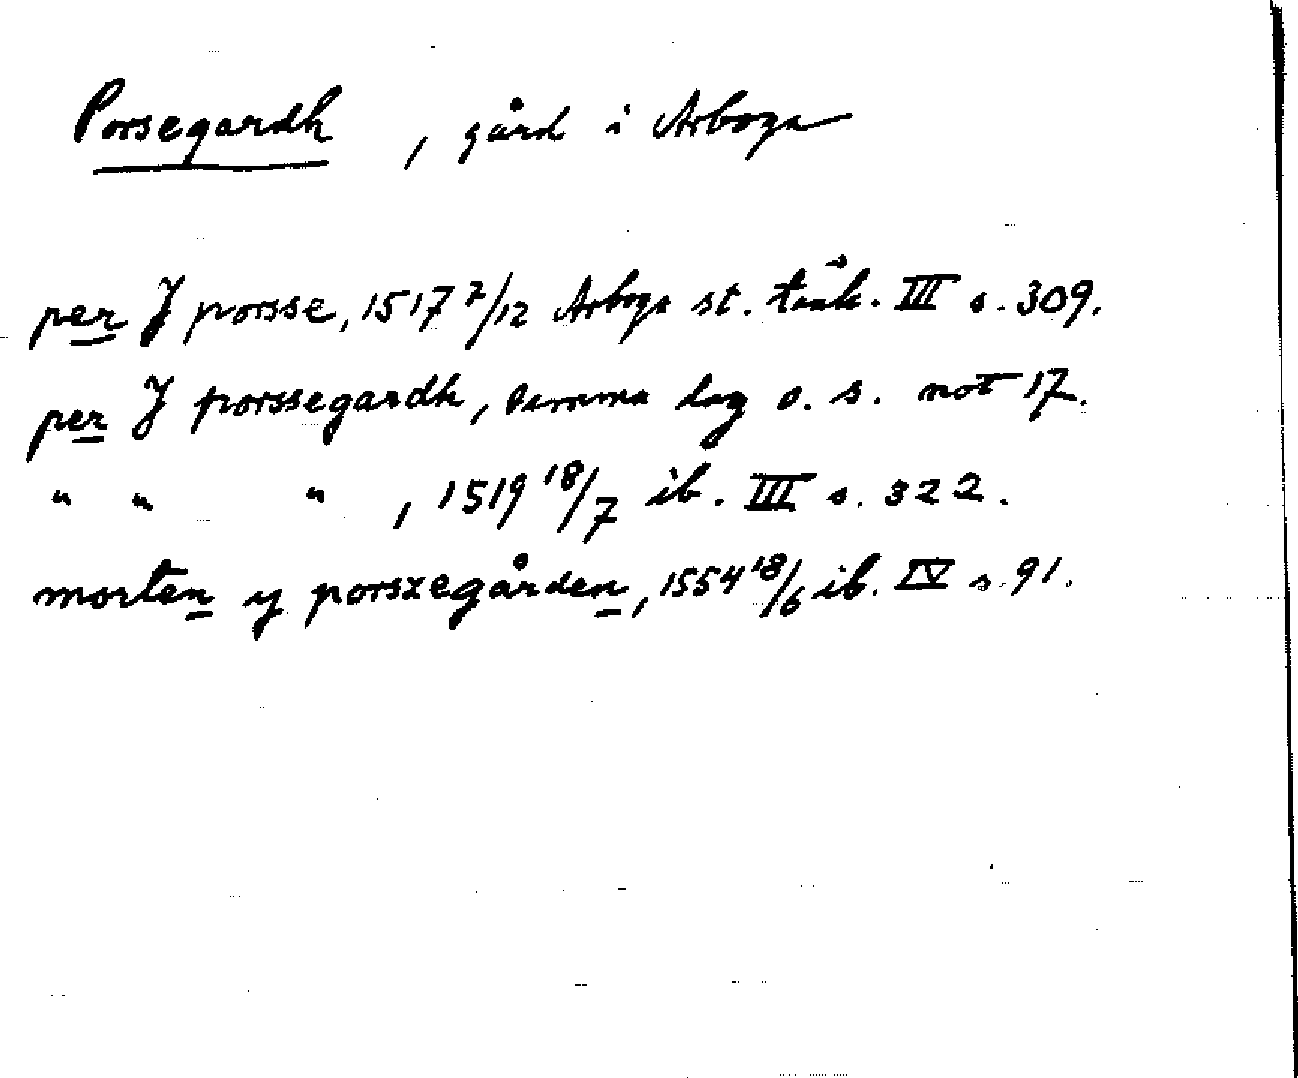 Porsegardh, gård i Arboga
per J porsse, 1517 7/12 Arboga st. tänk. III s. 309.
per J porssegardh, samma dag o. s. not 17.
" " ", 1519 18/7 ib. III s. 322.
morten y porszegården, 1554 18/6 ib. IV s. 91.